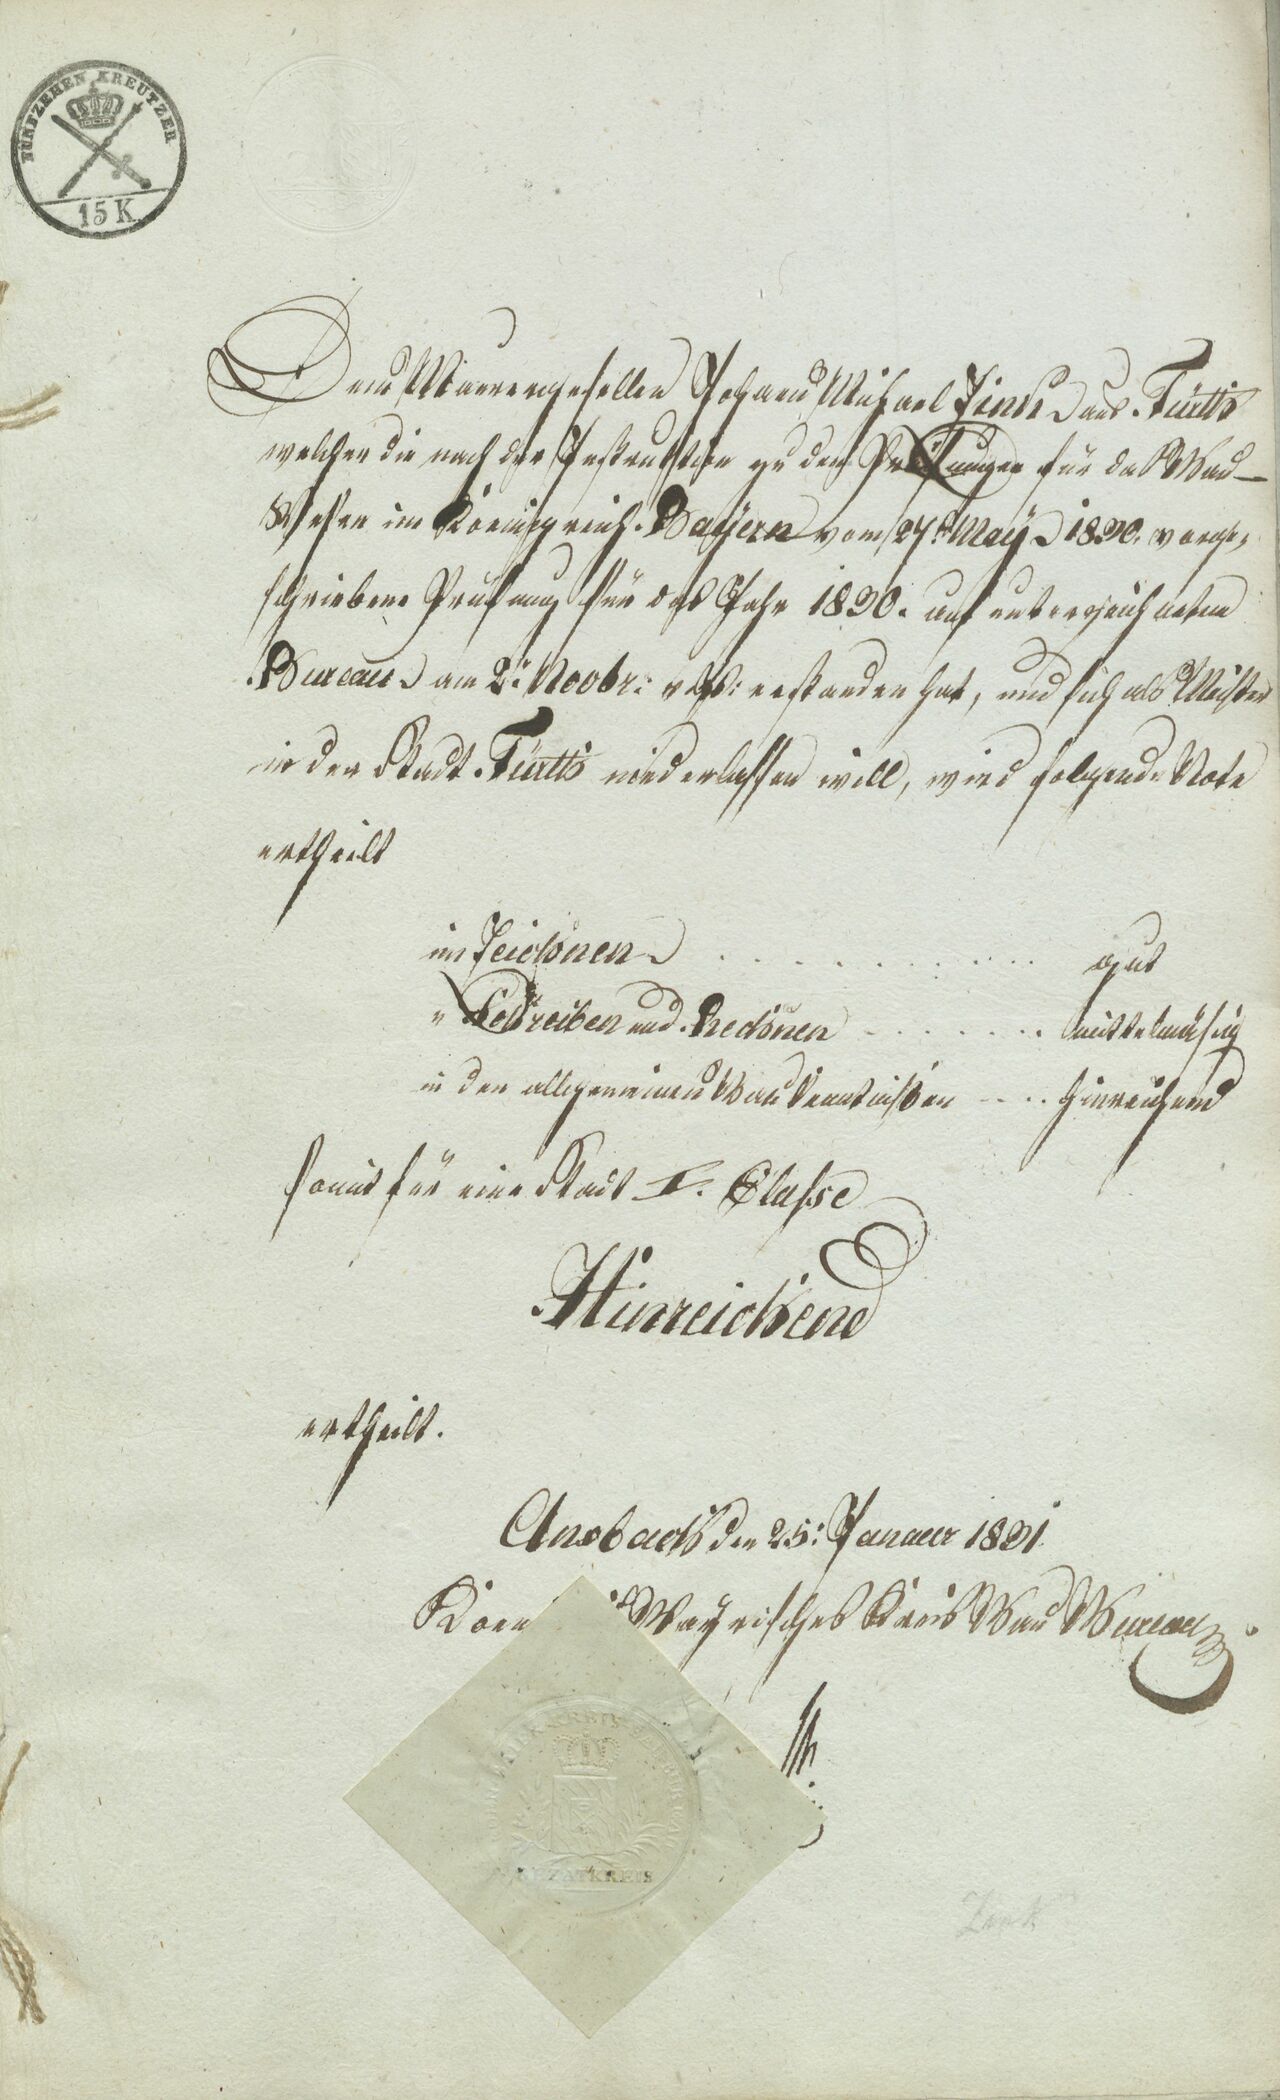 FÜNFZEHEN KREUTZER
15 K
Dem Maurergesellen Johann Michael Zink aus Fürth
welcher die nach der Instruktion zu den Prüfungen für das Bau-
Wesen im Koenigreich Bayern vom 27. May 1830. vorge,
schriebene Prüfung für das Jahr 1830. auf unterzeichnetem
Bureau am 2. Novbr: erstanden hat, und sich als Meister
in der Stadt Fürth niederlassen will, wird folgende Note
ertheilt
im Zeichnen gut
" Schreiben und Rechnen mittelmäsig
in den allgemeinen Baukenntnißen hinreichend
somit für eine Stadt I. Classe
Hinreichend
ertheilt.
Ansbach den 25: Januar 1831
Bayrisches Kreis Bau Bureau
REZATKREIS
Zink